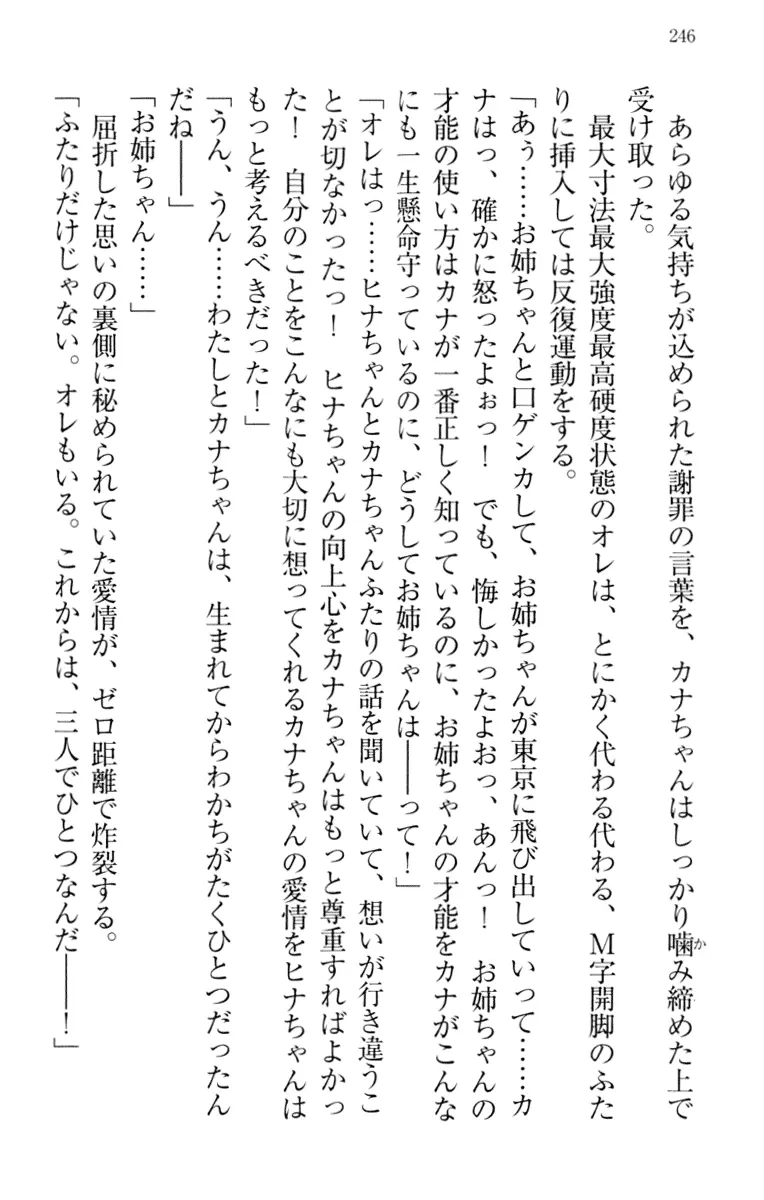 246
あらゆる気持ちが込められた謝罪の言葉を、カナちゃんはしっかり噛み締めた上で
か
受け取った。
最大寸法最大強度最高硬度状態のオレは、とにかく代わる代わる、M字開脚のふた
りに挿入しては反復運動をする。
「あぅ……お姉ちゃんと口ゲンカして、お姉ちゃんが東京に飛び出していって……カ
ナはっ、確かに怒ったよぉっ！　でも、悔しかったよおっ、あんっ！　お姉ちゃんの
才能の使い方はカナが一番正しく知っているのに、お姉ちゃんの才能をカナがこんな
にも一生懸命守っているのに、どうしてお姉ちゃんは――って！」
「オレはっ……ヒナちゃんとカナちゃんふたりの話を聞いていて、想いが行き違うこ
とが切なかったっ！　ヒナちゃんの向上心をカナちゃんはもっと尊重すればよかっ
た！　自分のことをこんなにも大切に想ってくれるカナちゃんの愛情をヒナちゃんは
もっと考えるべきだった！」
「うん、うん……わたしとカナちゃんは、生まれてからわかちがたくひとつだったん
だね――」
「お姉ちゃん……」
屈折した思いの裏側に秘められていた愛情が、ゼロ距離で炸裂する。
「ふたりだけじゃない。オレもいる。これからは、三人でひとつなんだ――！」